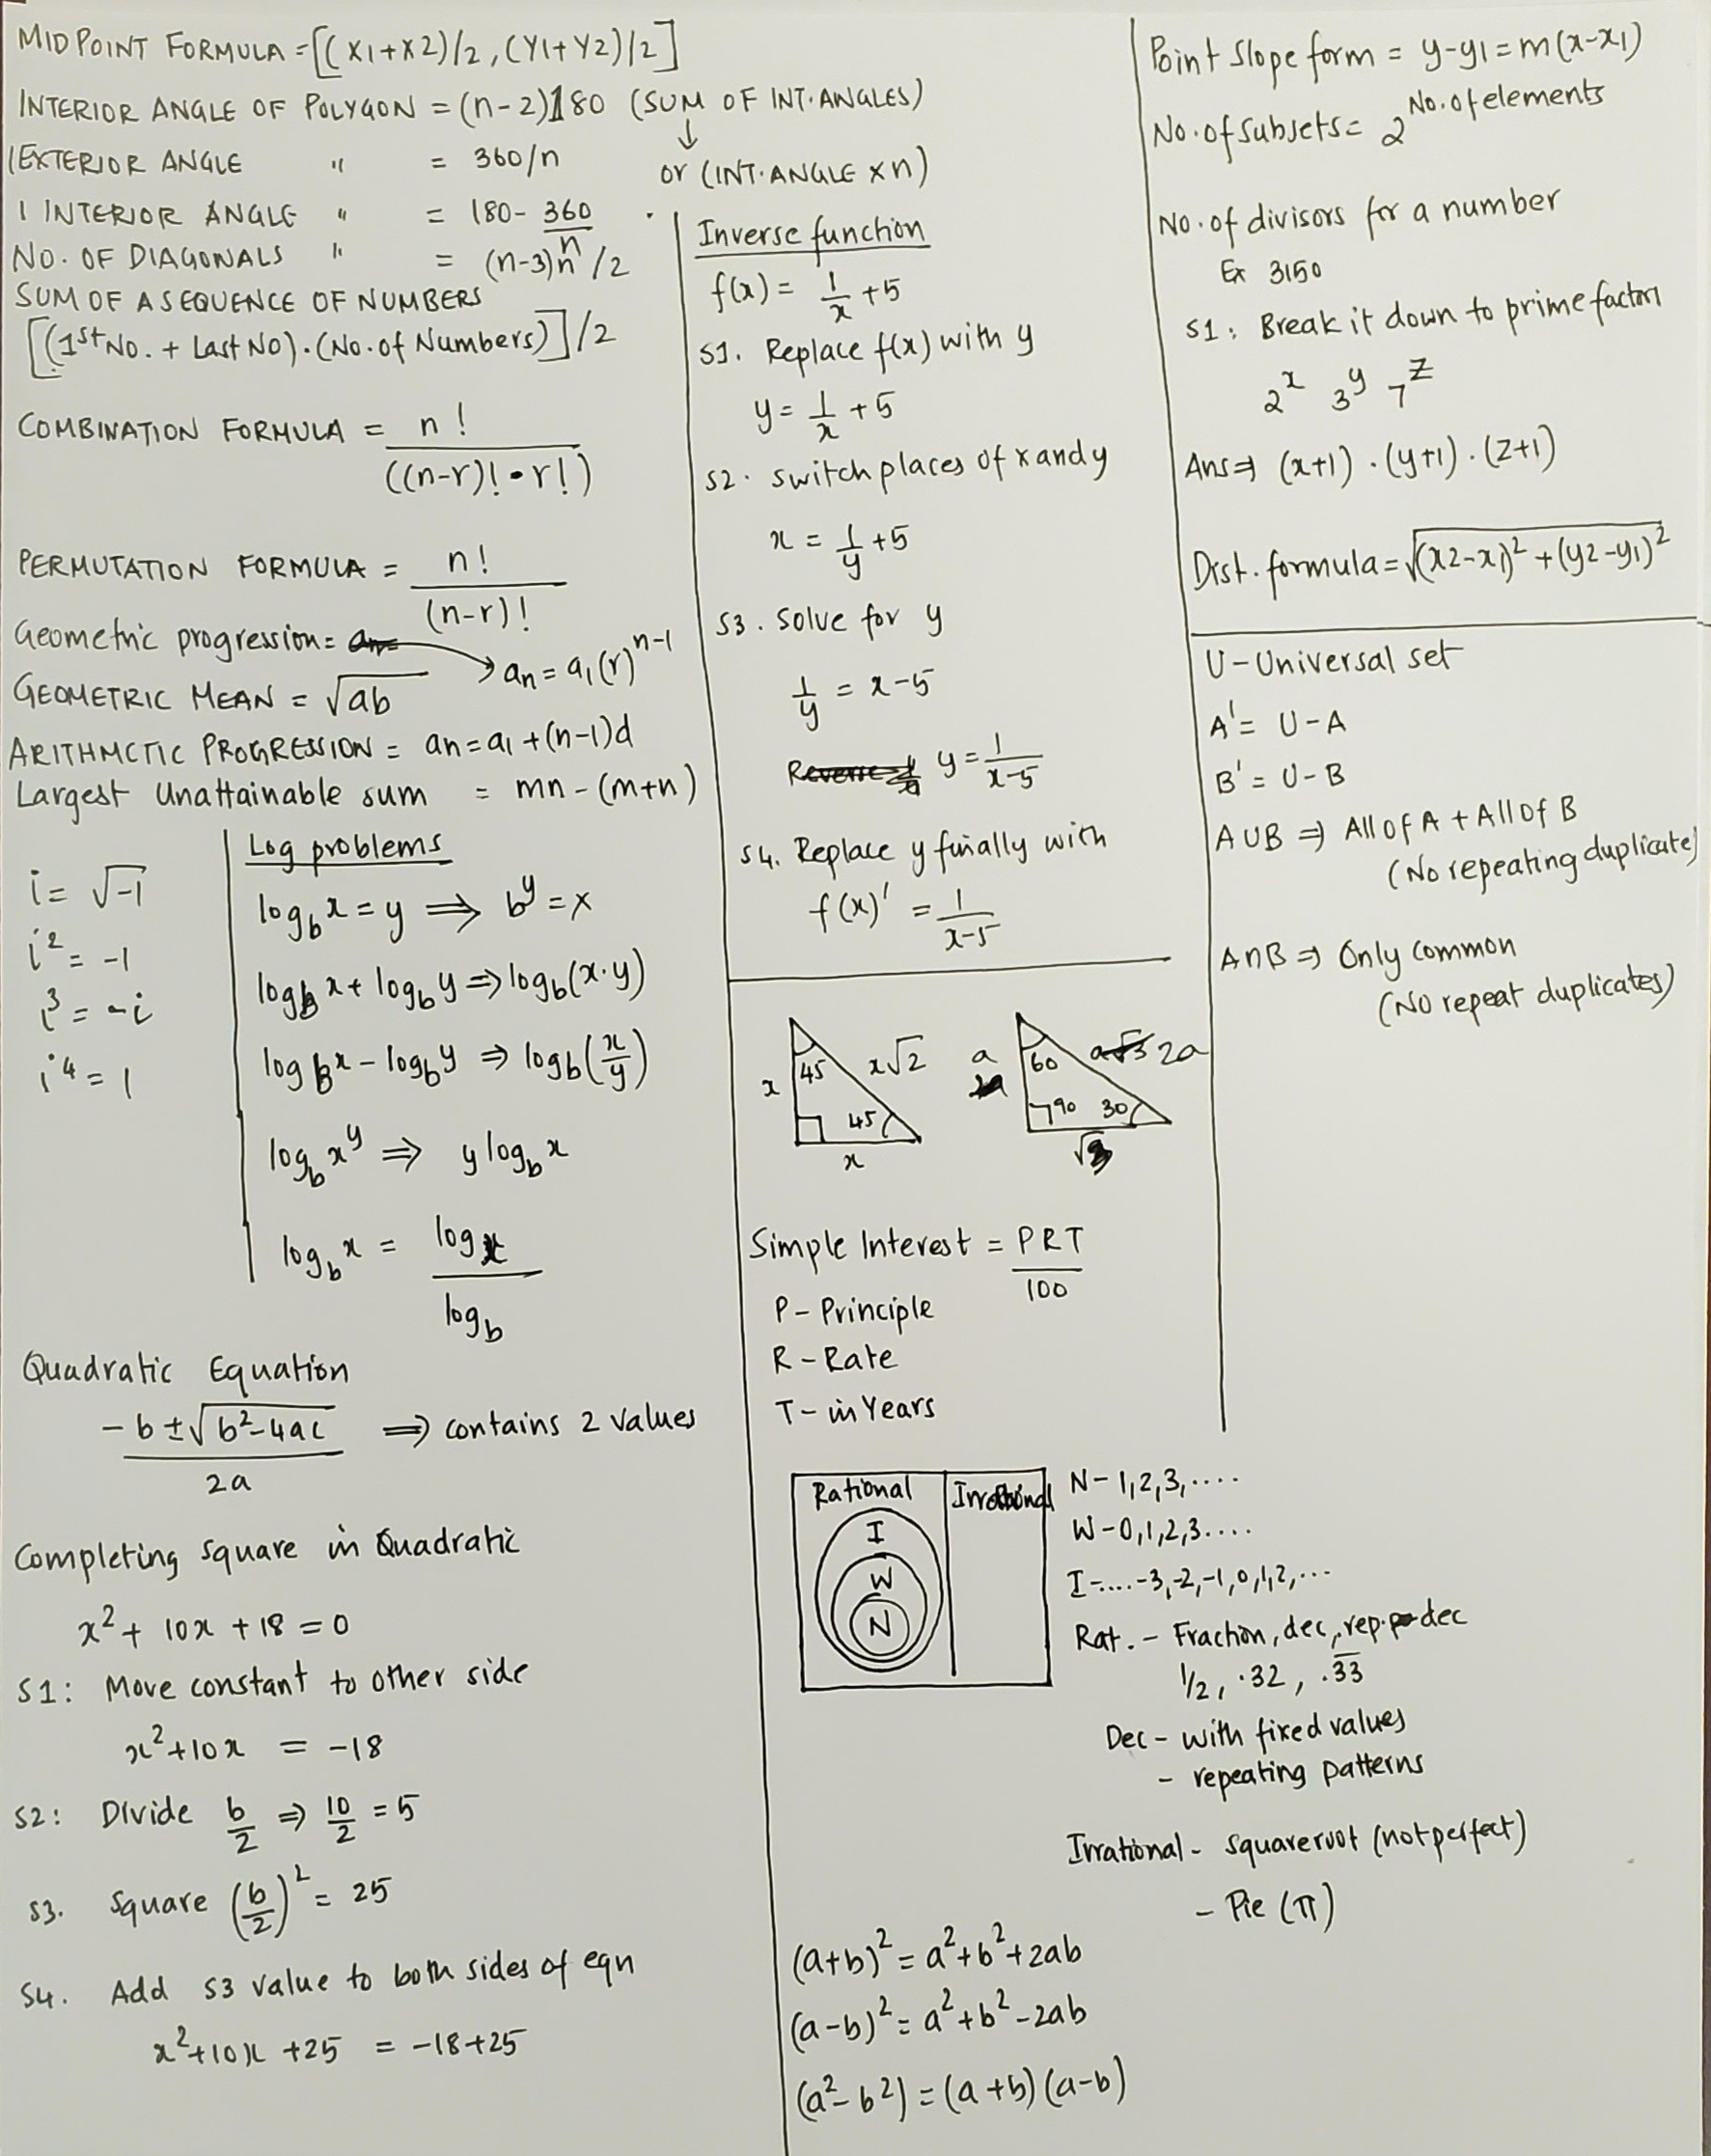 MIDPOINT FORMULA = [(X1+X2)/2, (Y1+Y2)/2]
INTERIOR ANGLE OF POLYGON = (n-2)180 (SUM OF INT. ANGLES)
↓
1 EXTERIOR ANGLE " = 360/n or (INT. ANGLE × n)
1 INTERIOR ANGLE " = 180 - 360/n
NO. OF DIAGONALS " = (n-3)n/2
SUM OF A SEQUENCE OF NUMBERS
[(1st No. + Last No).(No. of Numbers)]/2
COMBINATION FORMULA = n!
((n-r)! • r!)
PERMUTATION FORMULA = n!
(n-r)!
Geometric progression = an = a1(r)^n-1
GEOMETRIC MEAN = √ab
ARITHMETIC PROGRESSION = an = a1 + (n-1)d
Largest Unattainable sum = mn - (m+n)
i = √-1
i² = -1
i³ = -i
i⁴ = 1
Log problems
log_b x = y ⇒ b^y = x
log_b x + log_b y ⇒ log_b (x·y)
log_b x - log_b y ⇒ log_b (x/y)
log_b x^y ⇒ y log_b x
log_b x = log x
log b
Quadratic Equation
-b ± √b²-4ac ⇒ contains 2 values
2a
Completing square in Quadratic
x² + 10x + 18 = 0
S1: Move constant to other side
x² + 10x = -18
S2: Divide b/2 ⇒ 10/2 = 5
S3. Square (b/2)² = 25
S4. Add S3 value to both sides of eqn
x² + 10x + 25 = -18 + 25
Inverse function
f(x) = 1/x + 5
S1. Replace f(x) with y
y = 1/x + 5
S2. switch places of x and y
x = 1/y + 5
S3. Solve for y
1/y = x - 5
Reverse y = 1/x-5
S4. Replace y finally with
f(x)' = 1/x-5
45 x√2
x
45
x
a 60 a√3 2a
90 30
Simple Interest = PRT
100
P - Principle
R - Rate
T - in Years
Rational Irrational
I
W
N
N - 1,2,3,....
W - 0,1,2,3....
I - ....-3,-2,-1,0,1,2,...
Rat. - Fraction, dec, rep. dec
1/2, .32, .3̅3̅
Dec - with fixed values
- repeating patterns
Irrational - squareroot (not perfect)
- Pie (π)
(a+b)² = a² + b² + 2ab
(a-b)² = a² + b² - 2ab
(a² - b²) = (a+b)(a-b)
Point Slope form = y-y1 = m(x-x1)
No. of subsets = 2^No. of elements
No. of divisors for a number
Ex 3150
S1: Break it down to prime factors
2^x 3^y 7^z
Ans ⇒ (x+1) . (y+1) . (z+1)
Dist. formula = √(x2-x1)² + (y2-y1)²
U - Universal set
A' = U - A
B' = U - B
A∪B ⇒ All of A + All of B
(No repeating duplicate)
A∩B ⇒ Only common
(No repeat duplicates)